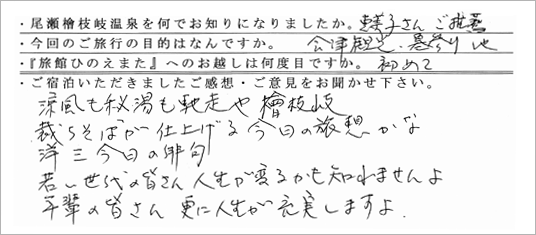 ・尾瀬檜枝岐温泉を何でお知りになりましたか。恵美子さんご推薦
・今回のご旅行の目的はなんですか。 会津観光、墓参り他
・『旅館ひのえまた』へのお越しは何度目ですか。 初めて
・ご宿泊いただきましたご感想・ご意見をお聞かせ下さい。
涼風も秘湯も馳走や檜枝岐
裁ちそばが仕上げる今日の旅想かな
洋三今日の俳句
若い世代の皆さん人生が変るかも知れませんよ
年輩の皆さん 更に人生が充実しますよ.